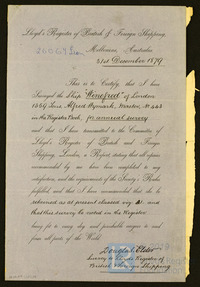 Lloyd's Register of British & Foreign Shipping,
Melbourne, Australia
31st December 1879
This is to Certify, that I have
Surveyed the Ship "Winefred" of London
1359 Tons, Alfred Bymark, Master, No 443
in the Register Book, for annual survey
and that I have transmitted to the Committee of
Lloyd's Register of British and Foreign
Shipping, London, a Report stating that the repairs
recommended by me have been completed to my
satisfaction, and the requirements of the Society's Rules
fulfilled, and that I have recommended that she be
retained as at present classed viz A1 and
that this survey be noted in the Register
being fit to carry dry and perishable cargoes to and
from all parts of the World.
Douglas Elder
Surveyor to Lloyds Register of
British & Foreign Shipping